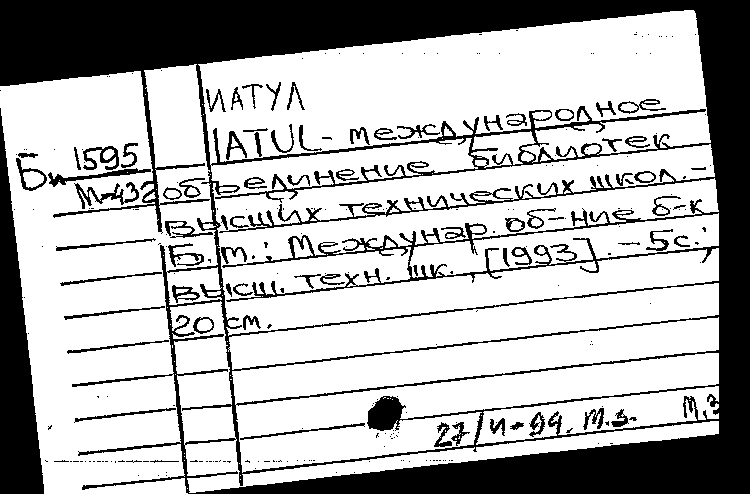 ИАТУЛ
IATUL - международное
Би 1595
М-432 объединение библиотек
высших технических школ. -
Б.м.: Междунар. об-ние б-к
высш. техн. шк., [1993]. - 5с.;
20 см.
27/И-94. М.З. М.З